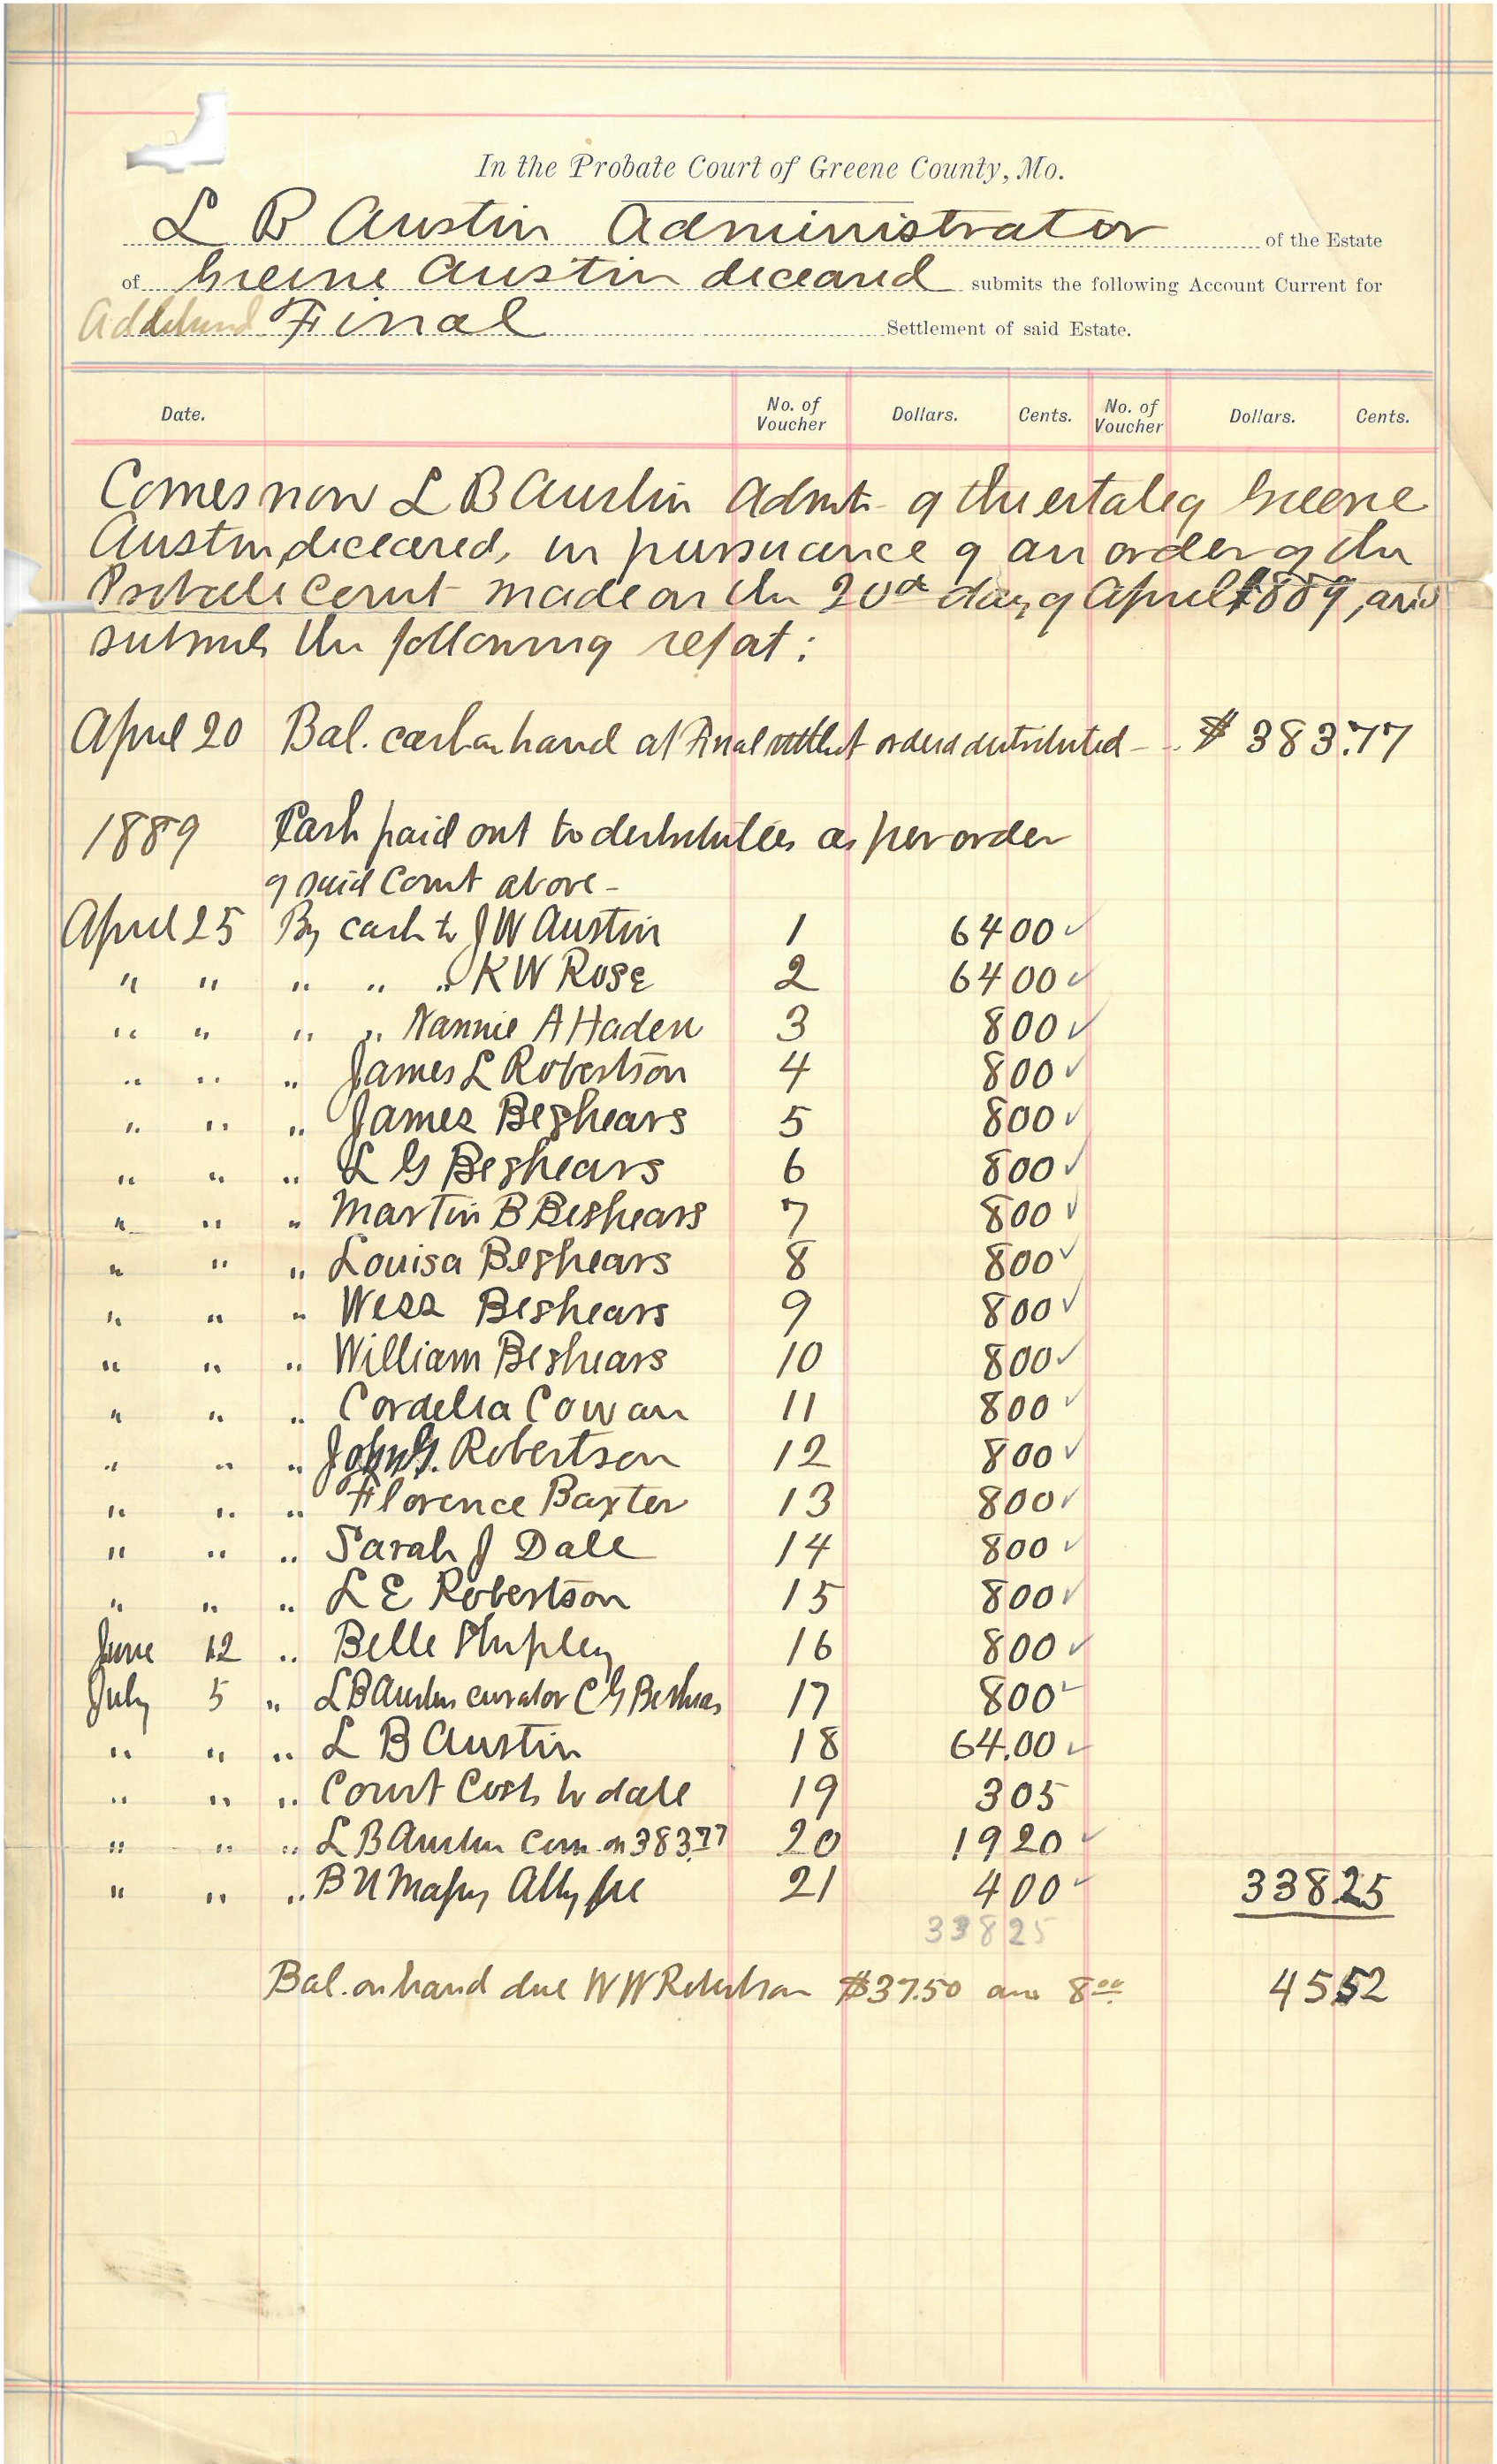 In the Probate Court of Greene County, Mo.
L B Austin Administrator of the Estate
of Greene Austin deceased submits the following Account Current for
Final Settlement of said Estate.
Date. No. of Voucher Dollars. Cents. No. of Voucher Dollars. Cents.
Comes now L B Austin Admr of the estate of Greene
Austin, deceased, in pursuance of an order of the
Probate Court made on the 20th day of April 1889, and
submits the following report:
April 20 Bal. cash on hand at Final settlet ordered distributed - $ 383.77
1889 Cash paid out to distributees as per order
of said Court above -
April 25 By cash to J W Austin 1 64 00 ✓
" " " " " K W Rose 2 64 00 ✓
" " " " Nannie A Haden 3 8 00 ✓
" " " James L Robertson 4 8 00 ✓
" " " James Beshears 5 8 00 ✓
" " " L G Beshears 6 8 00 ✓
" " " Martin B Beshears 7 8 00 ✓
" " " Louisa Beshears 8 8 00 ✓
" " " Wess Beshears 9 8 00 ✓
" " " William Beshears 10 8 00 ✓
" " " Cordelia Cowan 11 8 00 ✓
" " " John G. Robertson 12 8 00 ✓
" " " Florence Baxter 13 8 00 ✓
" " " Sarah J Dale 14 8 00 ✓
" " " L E Robertson 15 8 00 ✓
June 12 " Belle Shipley 16 8 00 ✓
July 5 " L B Austin curator C G Beshears 17 8 00 ✓
" " " L B Austin 18 64.00 ✓
" " " Court Costs to date 19 3 05
" " " L B Austin Com. on 383.77 20 19 20 ✓
" " " B U Massey Atty fee 21 4 00 ✓ 338 25
338 25
Bal. on hand due W W Robertson $37.50 and 8.00 45 52